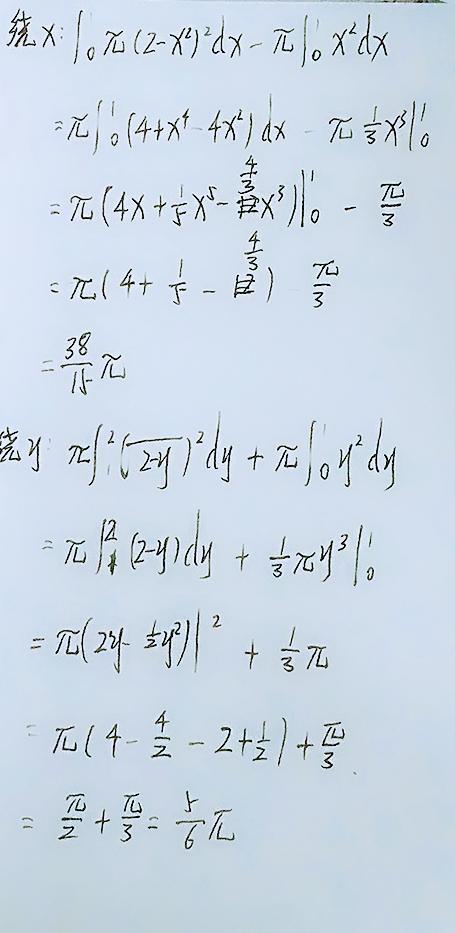 绕x: ∫₀¹ π(2-x²)²dx - π∫₀¹ x²dx
=π∫₀¹ (4+x⁴-4x²)dx - π ⅓x³|₀¹
=π(4x+⅕x⁵-4/3x³)|₀¹ - π/3
=π(4+⅕-4/3) - π/3
=38/15 π
绕y: π∫₁²(√(2-y))²dy + π∫₀¹y²dy
=π∫₁²(2-y)dy + ⅓πy³|₀¹
=π(2y-½y²)|² + ⅓π
=π(4-4/2-2+½)+π/3
=π/2+π/3=5/6π